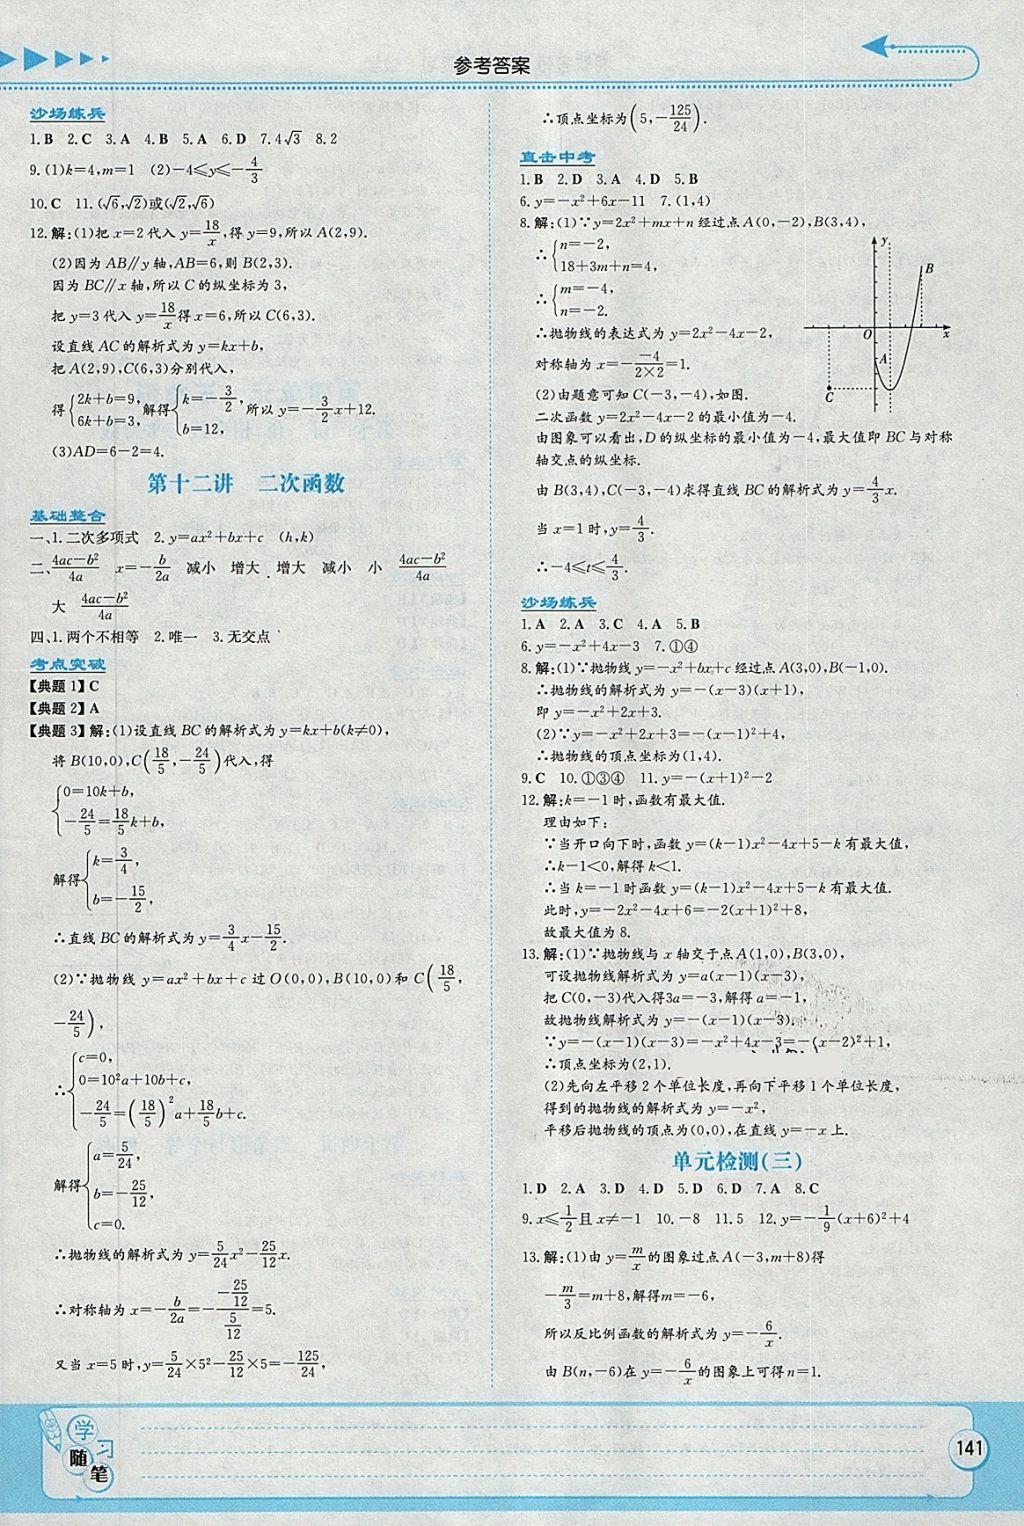 参考答案
沙场练兵
1.B 2.C 3.A 4.B 5.A 6.D 7.4√3 8.2
9.(1)k=4,m=1 (2)-4≤y≤-4/3
10.C 11.(√6,√2)或(√2,√6)
12.解:(1)把x=2代入y=18/x,得y=9,所以A(2,9).
(2)因为AB∥y轴,AB=6,则B(2,3).
因为BC∥x轴,所以C的纵坐标为3,
把y=3代入y=18/x得x=6,所以C(6,3).
设直线AC的解析式为y=kx+b,
把A(2,9),C(6,3)分别代入,
得{2k+b=9, 6k+b=3,解得{k=-3/2, b=12,所以y=-3/2x+12.
(3)AD=6-2=4.
第十二讲 二次函数
基础整合
一、1.二次多项式 2.y=ax²+bx+c (h,k)
二、(4ac-b²)/4a x=-b/2a 减小 增大 增大 减小 小 (4ac-b²)/4a
大 (4ac-b²)/4a
四、1.两个不相等 2.唯一 3.无交点
考点突破
【典题1】C
【典题2】A
【典题3】解:(1)设直线BC的解析式为y=kx+b(k≠0),
将B(10,0),C(18/5,-24/5)代入,得
{0=10k+b,
-24/5=18/5k+b,
解得{k=3/4,
b=-15/2,
∴直线BC的解析式为y=3/4x-15/2.
(2)∵抛物线y=ax²+bx+c过O(0,0),B(10,0)和C(18/5,
-24/5),
∴{c=0,
0=10²a+10b+c,
-24/5=(18/5)²a+18/5b+c.
解得{a=5/24,
b=-25/12,
c=0.
∴抛物线的解析式为y=5/24x²-25/12x.
∴对称轴为x=-b/2a=-(-25/12)/(5/12)=5.
又当x=5时,y=5/24×5²-25/12×5=-125/24,
∴顶点坐标为(5,-125/24).
直击中考
1.B 2.D 3.A 4.D 5.B
6.y=-x²+6x-11 7.(1,4)
8.解:(1)∵y=2x²+mx+n经过点A(0,-2),B(3,4),
∴{n=-2,
18+3m+n=4,
∴{m=-4,
n=-2.
∴抛物线的表达式为y=2x²-4x-2,
对称轴为x=-(-4)/(2×2)=1.
(2)由题意可知C(-3,-4),如图.
二次函数y=2x²-4x-2的最小值为-4.
由图象可以看出,D的纵坐标的最小值为-4,最大值即BC与对称
轴交点的纵坐标.
由B(3,4),C(-3,-4)求得直线BC的解析式为y=4/3x.
当x=1时,y=4/3.
∴-4≤t≤4/3.
y
B
O
x
A
C
沙场练兵
1.A 2.A 3.C 4.A 5.B
6.y=-x²+4x-3 7.①④
8.解:(1)∵抛物线y=-x²+bx+c经过点A(3,0),B(-1,0).
∴抛物线的解析式为y=-(x-3)(x+1),
即y=-x²+2x+3.
(2)∵y=-x²+2x+3=-(x-1)²+4,
∴抛物线的顶点坐标为(1,4).
9.C 10.①③④ 11.y=-(x+1)²-2
12.解:k=-1时,函数有最大值.
理由如下:
∵当开口向下时,函数y=(k-1)x²-4x+5-k有最大值.
∴k-1<0,解得k<1.
∴当k=-1时函数y=(k-1)x²-4x+5-k有最大值.
此时,y=-2x²-4x+6=-2(x+1)²+8,
故最大值为8.
13.解:(1)∵抛物线与x轴交于点A(1,0),B(3,0),
可设抛物线解析式为y=a(x-1)(x-3),
把C(0,-3)代入得3a=-3,解得a=-1,
故抛物线解析式为y=-(x-1)(x-3).
∵y=-(x-1)(x-3)=-x²+4x-3=-(x-2)²+1,
∴顶点坐标为(2,1).
(2)先向左平移2个单位长度,再向下平移1个单位长度,
得到的抛物线的解析式为y=-x²,
平移后抛物线的顶点为(0,0),在直线y=-x上.
单元检测(三)
1.D 2.A 3.D 4.D 5.D 6.D 7.A 8.C
9.x≤1/2且x≠-1 10.-8 11.5 12.y=-1/9(x+6)²+4
13.解:(1)由y=m/x的图象过点A(-3,m+8)得
-m/3=m+8,解得m=-6,
所以反比例函数的解析式为y=-6/x.
由B(n,-6)在y=-6/x的图象上可得n=1.
学习随笔
141